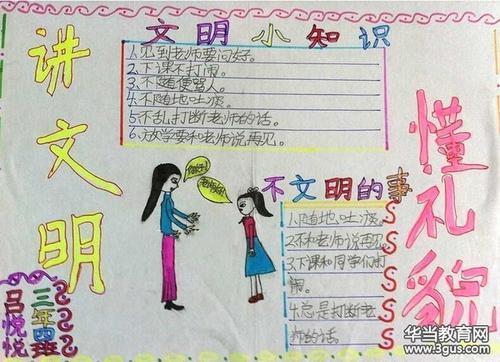 文明小知识
讲文明
懂礼貌
1.见到老师要问好。
2.下课不打闹。
3.不随便骂人。
4.不随地吐痰。
5.不乱打断老师的话。
6.放学要和老师说再见。
不文明的事
1.随地吐痰。
2.不和老师说再见。
3.下课和同学们打
闹。
4.总是打断老
师的话。
三年四班
吕悦悦
华当教育网
www.3gus.com